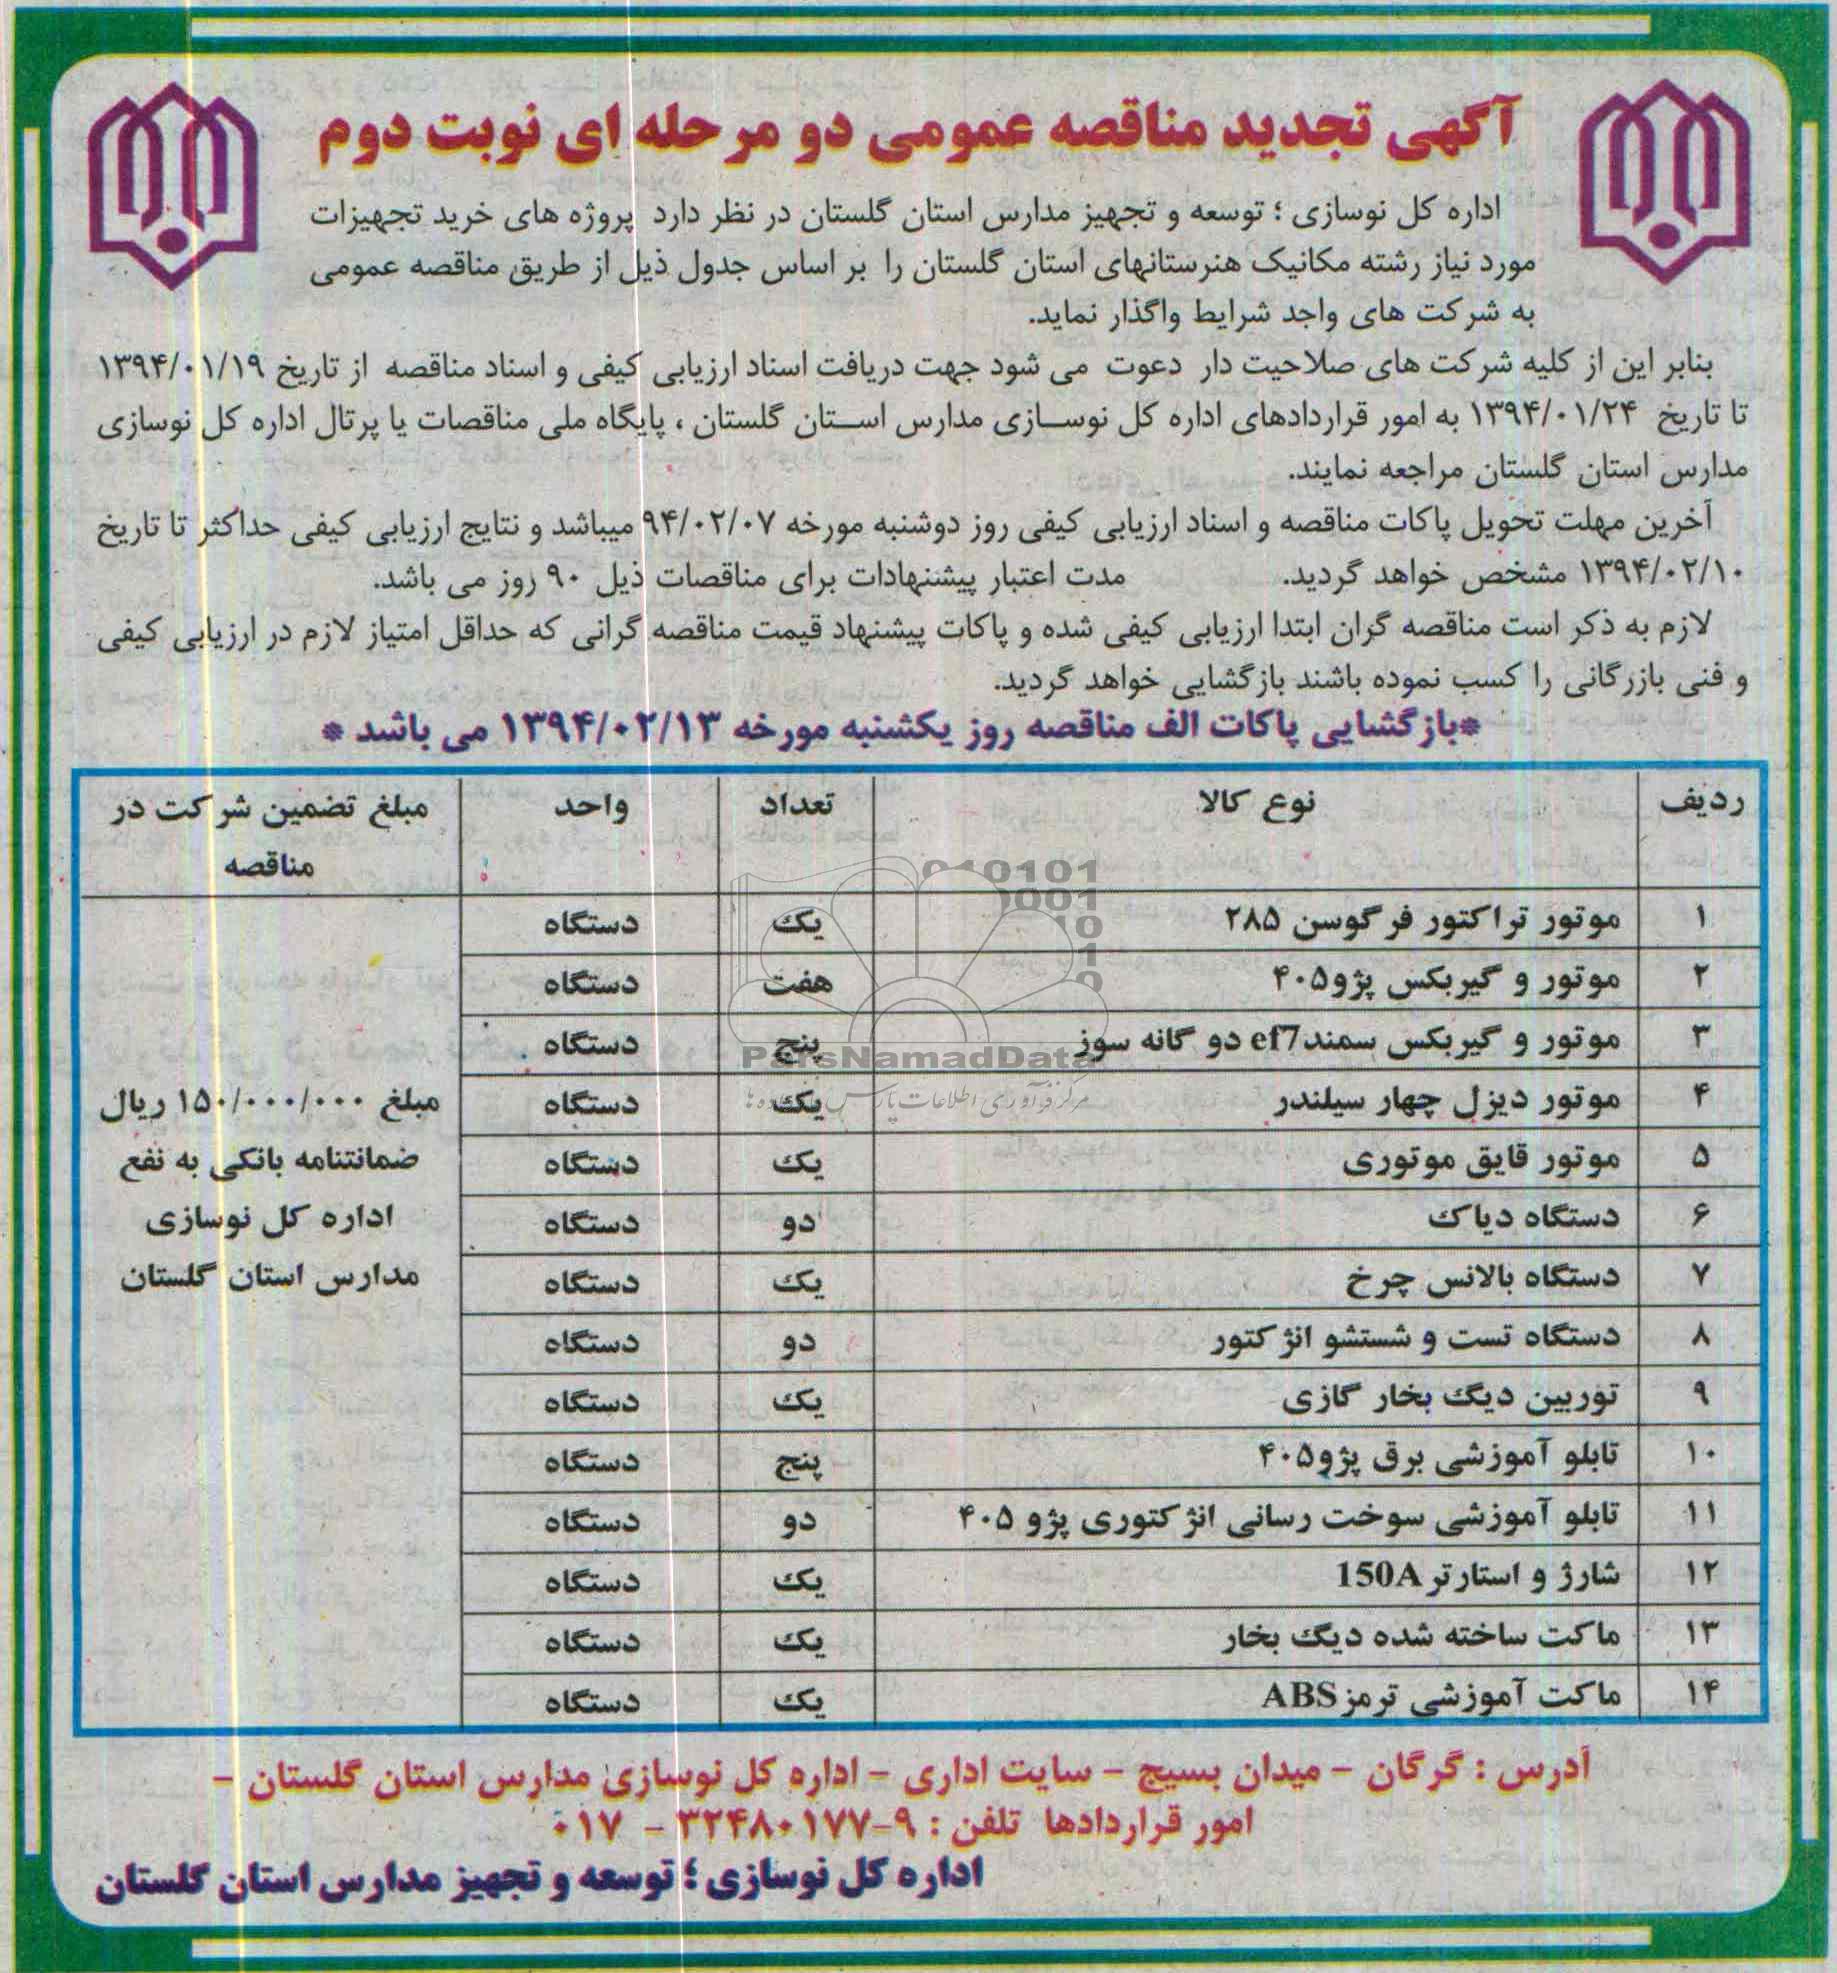 آگهی تجدید مناقصه عمومی دو مرحله ای نوبت دوم
اداره کل نوسازی ؛ توسعه و تجهیز مدارس استان گلستان در نظر دارد پروژه های خرید تجهیزات
مورد نیاز رشته مکانیک هنرستانهای استان گلستان را بر اساس جدول ذیل از طریق مناقصه عمومی
به شرکت های واجد شرایط واگذار نماید.
بنابر این از کلیه شرکت های صلاحیت دار دعوت می شود جهت دریافت اسناد ارزیابی کیفی و اسناد مناقصه از تاریخ ۱۳۹۴/۰۱/۱۹
تا تاریخ ۱۳۹۴/۰۱/۲۴ به امور قراردادهای اداره کل نوسازی مدارس استان گلستان ، پایگاه ملی مناقصات یا پرتال اداره کل نوسازی
مدارس استان گلستان مراجعه نمایند.
آخرین مهلت تحویل پاکات مناقصه و اسناد ارزیابی کیفی روز دوشنبه مورخه ۹۴/۰۲/۰۷ میباشد و نتایج ارزیابی کیفی حداکثر تا تاریخ
۱۳۹۴/۰۲/۱۰ مشخص خواهد گردید. مدت اعتبار پیشنهادات برای مناقصات ذیل ۹۰ روز می باشد.
لازم به ذکر است مناقصه گران ابتدا ارزیابی کیفی شده و پاکات پیشنهاد قیمت مناقصه گرانی که حداقل امتیاز لازم در ارزیابی کیفی
و فنی بازرگانی را کسب نموده باشند بازگشایی خواهد گردید.
*بازگشایی پاکات الف مناقصه روز یکشنبه مورخه ۱۳۹۴/۰۲/۱۳ می باشد *
ردیف نوع کالا تعداد واحد مبلغ تضمین شرکت در
مناقصه
۱ موتور تراکتور فرگوسن ۲۸۵ یک دستگاه
۲ موتور و گیربکس پژو۴۰۵ هفت دستگاه
۳ موتور و گیربکس سمندef7 دو گانه سوز پنج دستگاه
۴ موتور دیزل چهار سیلندر یک دستگاه مبلغ ۱۵۰/۰۰۰/۰۰۰ ریال
۵ موتور قایق موتوری یک دستگاه ضمانتنامه بانکی به نفع
۶ دستگاه دیاک دو دستگاه اداره کل نوسازی
۷ دستگاه بالانس چرخ یک دستگاه مدارس استان گلستان
۸ دستگاه تست و شستشو انژکتور دو دستگاه
۹ توربین دیگ بخار گازی یک دستگاه
۱۰ تابلو آموزشی برق پژو۴۰۵ پنج دستگاه
۱۱ تابلو آموزشی سوخت رسانی انژکتوری پژو ۴۰۵ دو دستگاه
۱۲ شارژ و استارتر 150A یک دستگاه
۱۳ ماکت ساخته شده دیگ بخار یک دستگاه
۱۴ ماکت آموزشی ترمزABS یک دستگاه
ParsNamadData
آدرس : گرگان - میدان بسیج - سایت اداری - اداره کل نوسازی مدارس استان گلستان -
امور قراردادها تلفن : ۹-۳۲۴۸۰۱۷۷ - ۰۱۷
اداره کل نوسازی ؛ توسعه و تجهیز مدارس استان گلستان